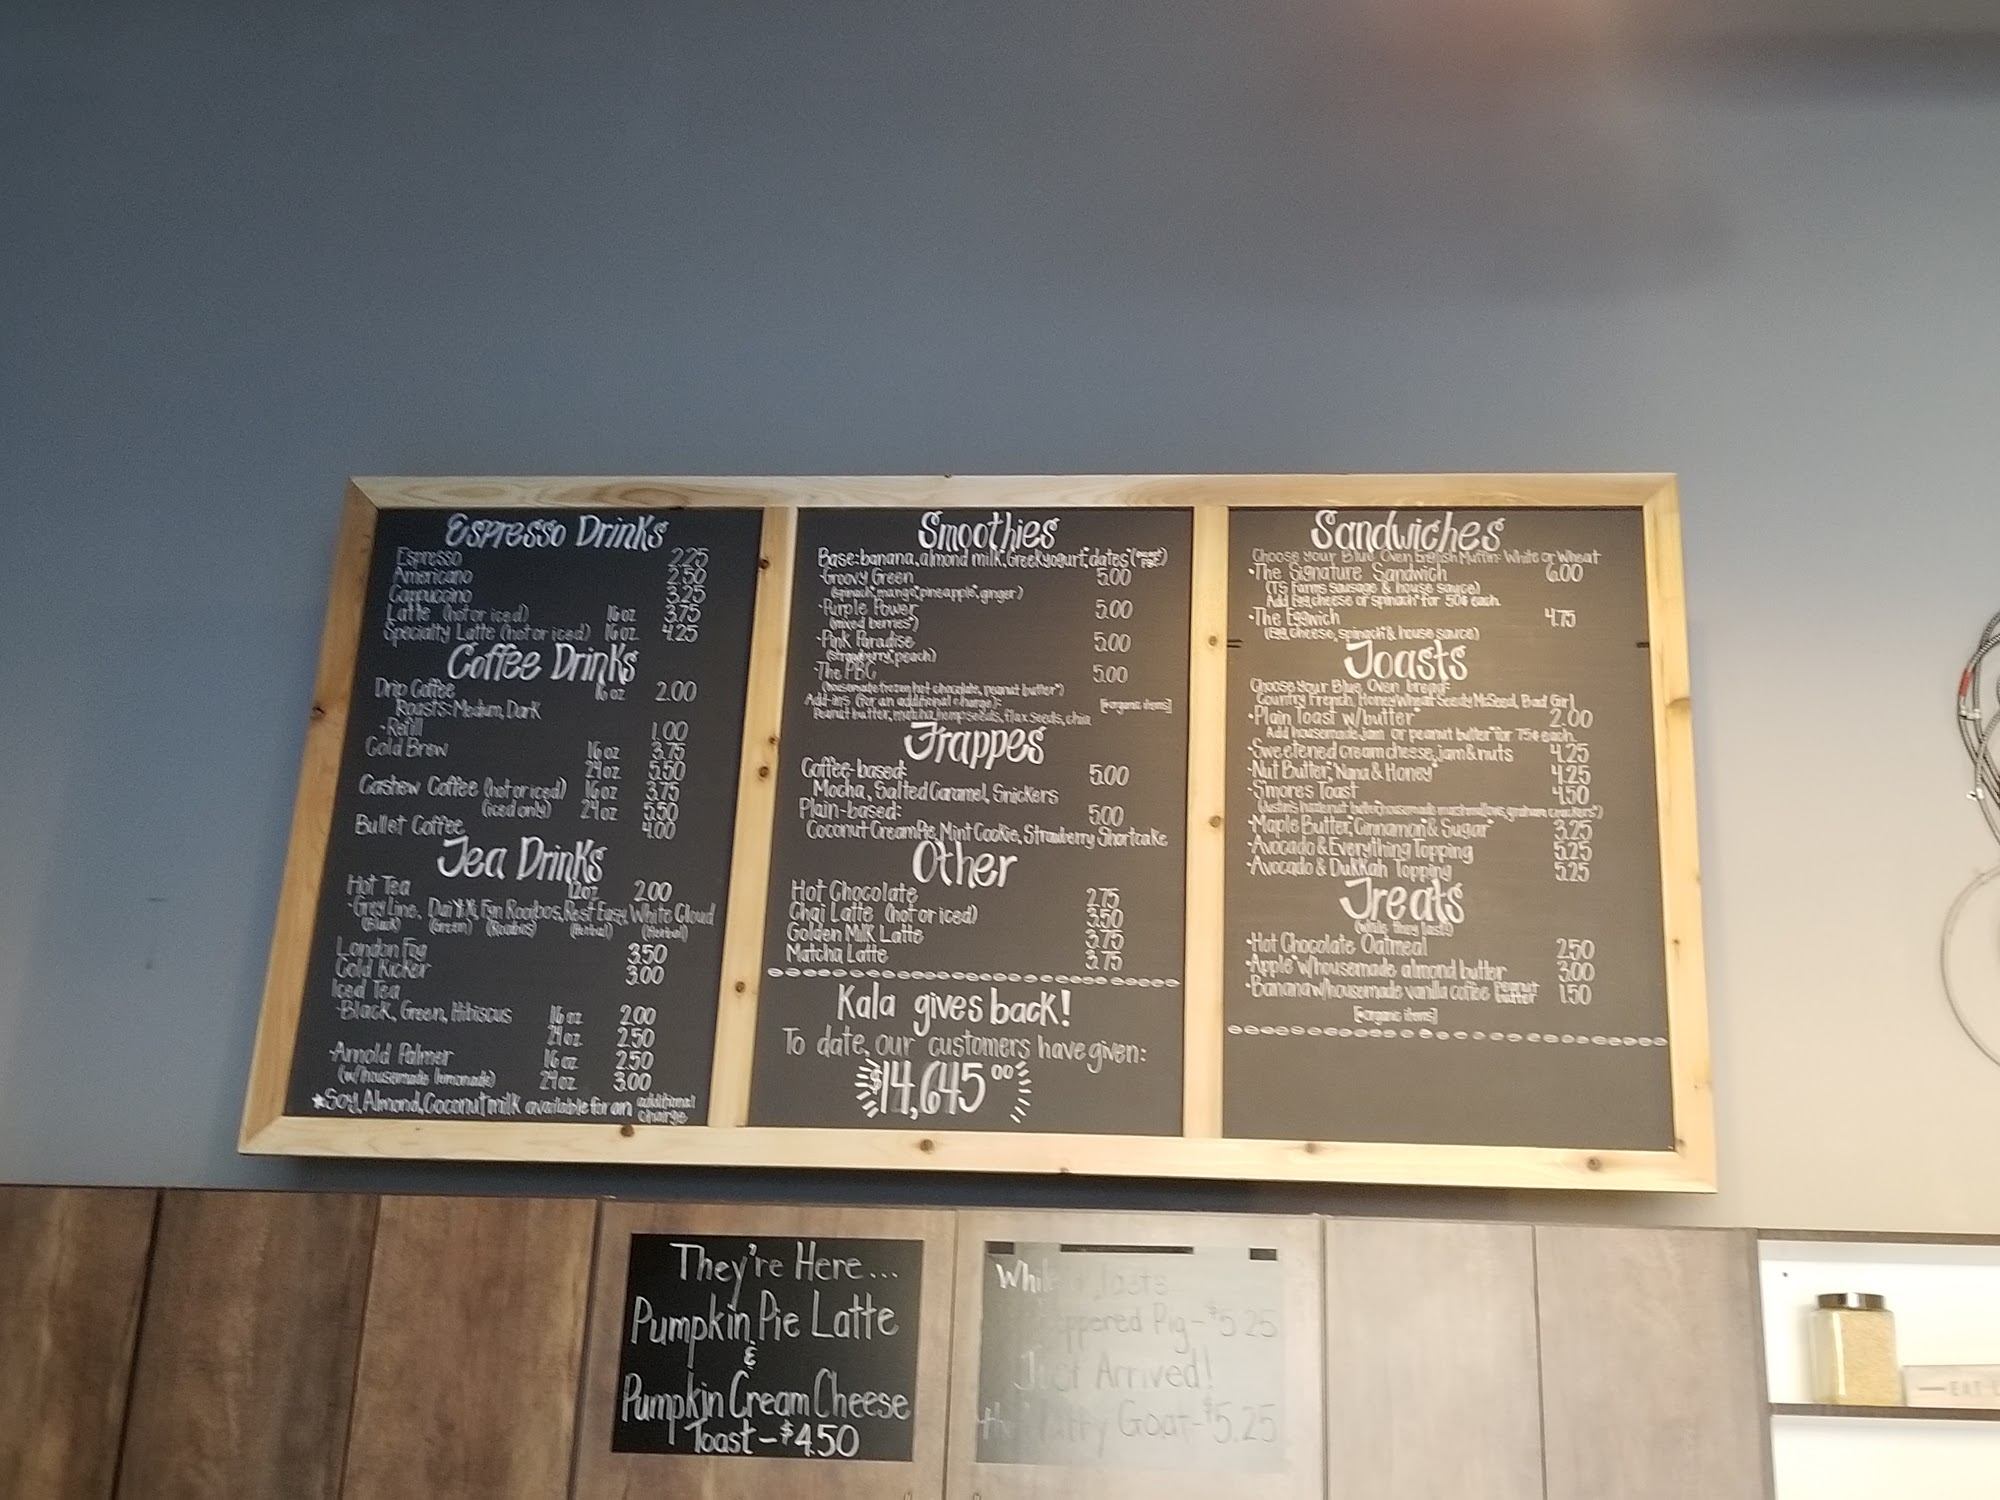 Espresso Drinks
Espresso 2.25
Americano 2.50
Cappuccino 3.25
Latte (hot or iced) 16oz 3.75
Specialty Latte (hot or iced) 16oz 4.25
Coffee Drinks
Drip Coffee 16oz 2.00
Roasts-Medium, Dark
-Refill 1.00
Cold Brew 16oz 3.75
24oz 5.50
Cashew Coffee (hot or iced) 16oz 3.75
(iced only) 24oz 5.50
Bullet Coffee 4.00
Tea Drinks
Hot Tea 12oz 2.00
-Grey Line, Fyn Rooibos, Rest Easy, White Cloud
(Black) (Green) (Rooibos) (Herbal) (Herbal)
London Fog 3.50
Cold Kicker 3.00
Iced Tea
-Black, Green, Hibiscus 16oz 2.00
24oz 2.50
-Arnold Palmer 16oz 2.50
(w/housemade lemonade) 24oz 3.00
*Soy, Almond, Coconut milk available for an additional charge
Smoothies
Base: banana, almond milk, Greek yogurt, dates*
-Groovy Green 5.00
(spinach*, mango*, pineapple*, ginger)
-Purple Power 5.00
(mixed berries*)
-Pink Paradise 5.00
(strawberry, peach)
-The PBC 5.00
(housemade frozen hot chocolate, peanut butter*)
Add-ins (for an additional charge): [*=organic items]
Peanut butter, matcha, hemp seeds, flax seeds, chia
Frappes
Coffee-based: 5.00
Mocha, Salted Caramel, Snickers
Plain-based: 5.00
Coconut Cream Pie, Mint Cookie, Strawberry Shortcake
Other
Hot Chocolate 2.75
Chai Latte (hot or iced) 3.50
Golden Milk Latte 3.75
Matcha Latte 3.75
Kala gives back!
To date, our customers have given:
$14,645.00
Sandwiches
Choose your Blue Oven English Muffin: White or Wheat
·The Signature Sandwich 6.00
(TS Farms sausage & house sauce)
Add Egg, cheese or spinach* for 50¢ each.
·The Eggwich 4.75
(Egg, cheese, spinach* & house sauce)
Toasts
Choose your Blue Oven bread:
Country French, Honey Wheat, Seedy McSeed, Bad Girl
·Plain Toast w/butter* 2.00
Add housemade jam or peanut butter* for 75¢ each.
·Sweetened cream cheese, jam & nuts 4.25
·Nut Butter,* Nana & Honey* 4.25
·S'mores Toast 4.50
(Justin's hazelnut butter, housemade marshmallows, graham crackers*)
·Maple Butter,* Cinnamon* & Sugar* 3.25
·Avocado & Everything Topping 5.25
·Avocado & Dukkah Topping 5.25
Treats
(while they last!)
·Hot Chocolate Oatmeal 2.50
·Apple* w/housemade almond butter 3.00
·Banana w/housemade vanilla coffee peanut butter 1.50
[*=organic items]
They're Here...
Pumpkin Pie Latte
&
Pumpkin Cream Cheese
Toast-$4.50
Pig-$5.25
Just Arrived!
Goat-$5.25
EAT